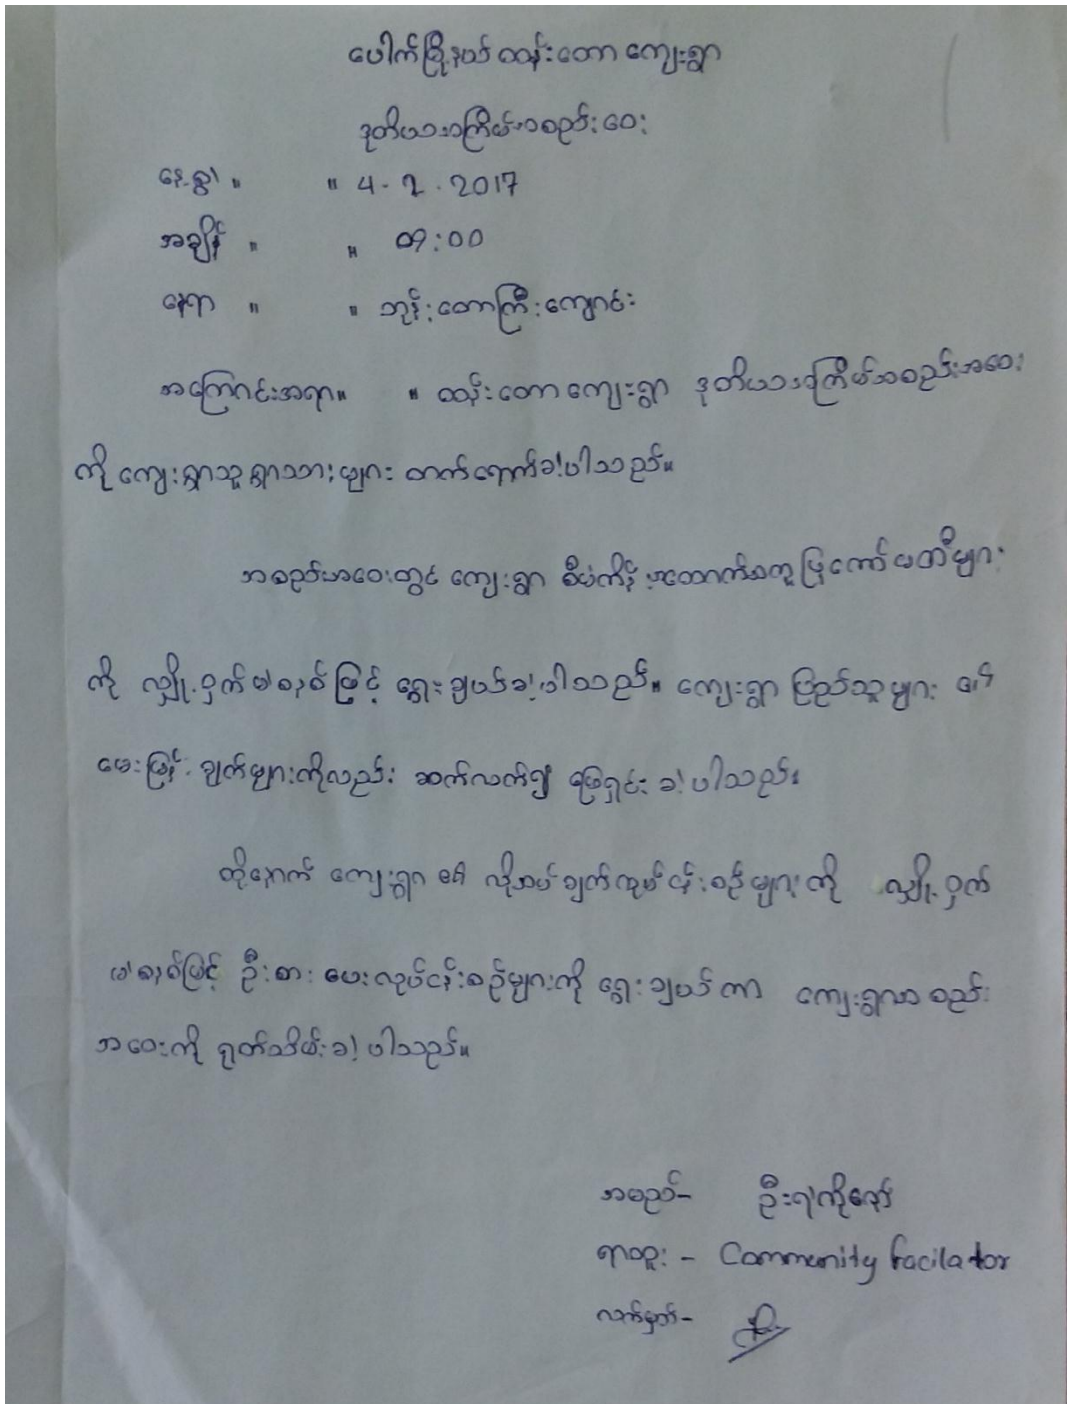 ပေါက်မြို့နယ် ထန်းတော ကျေးရွာ
ဒုတိယအကြိမ်အစည်းဝေး
နေ့စွဲ ။ ။ 4.2.2017
အချိန် ။ ။ 09:00
နေရာ ။ ။ ဘုန်းတော်ကြီးကျောင်း
အကြောင်းအရာ။ ။ ထန်းတော ကျေးရွာ ဒုတိယအကြိမ်အစည်းအဝေး
ကို ကျေးရွာသူရွာသားများ တက်ရောက်ခဲ့ပါသည်။
အစည်းအဝေးတွင် ကျေးရွာ စီမံကိန်းအထောက်အကူပြုကော်မတီများ
ကို လျှို့ဝှက်မဲစနစ်ဖြင့် ရွေးချယ်ခဲ့ပါသည်။ ကျေးရွာ ပြည်သူများ ၏
မေးမြန်းချက်များကိုလည်း ဆက်လက်၍ ဖြေရှင်းခဲ့ပါသည်။
ထို့နောက် ကျေးရွာ ၏ လိုအပ်ချက်လုပ်ငန်းစဉ်များကို လျှို့ဝှက်
မဲစနစ်ဖြင့် ဦးစားပေးလုပ်ငန်းစဉ်များကို ရွေးချယ်ကာ ကျေးရွာအစည်း
အဝေးကို ရုတ်သိမ်းခဲ့ပါသည်။
အမည်- ဦးရဲကိုနော်
ရာထူး - Community facilator
လက်မှတ်-